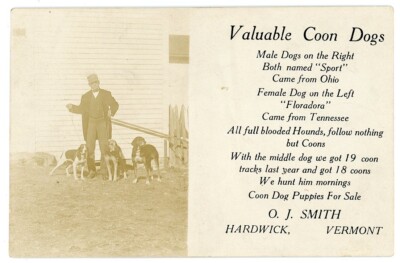 Valuable Coon Dogs
Male Dogs on the Right
Both named "Sport"
Came from Ohio
Female Dog on the Left
"Floradora"
Came from Tennessee
All full blooded Hounds, follow nothing
but Coons
With the middle dog we got 19 coon
tracks last year and got 18 coons
We hunt him mornings
Coon Dog Puppies For Sale
O. J. SMITH
HARDWICK, VERMONT